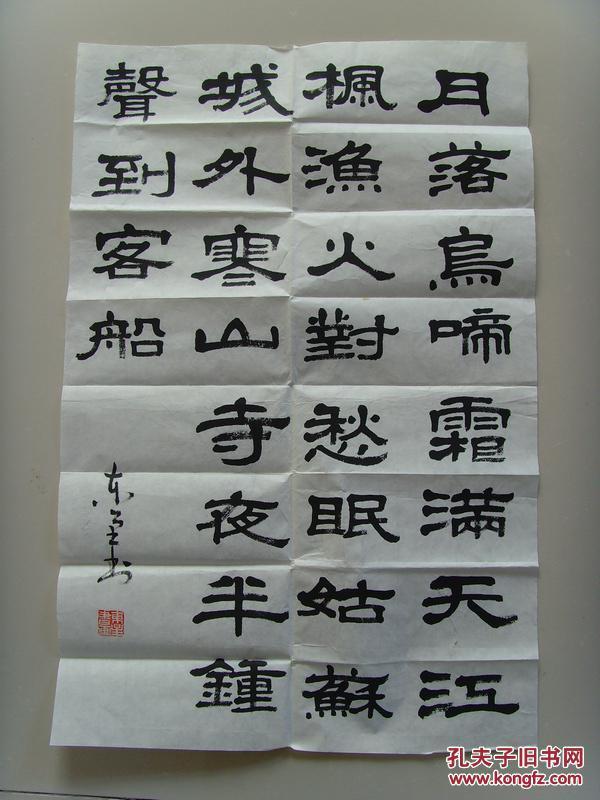 月落烏啼霜滿天江
楓漁火對愁眠姑蘇
城外寒山寺夜半鍾
聲到客船
孔夫子旧书网
www.kongfz.com